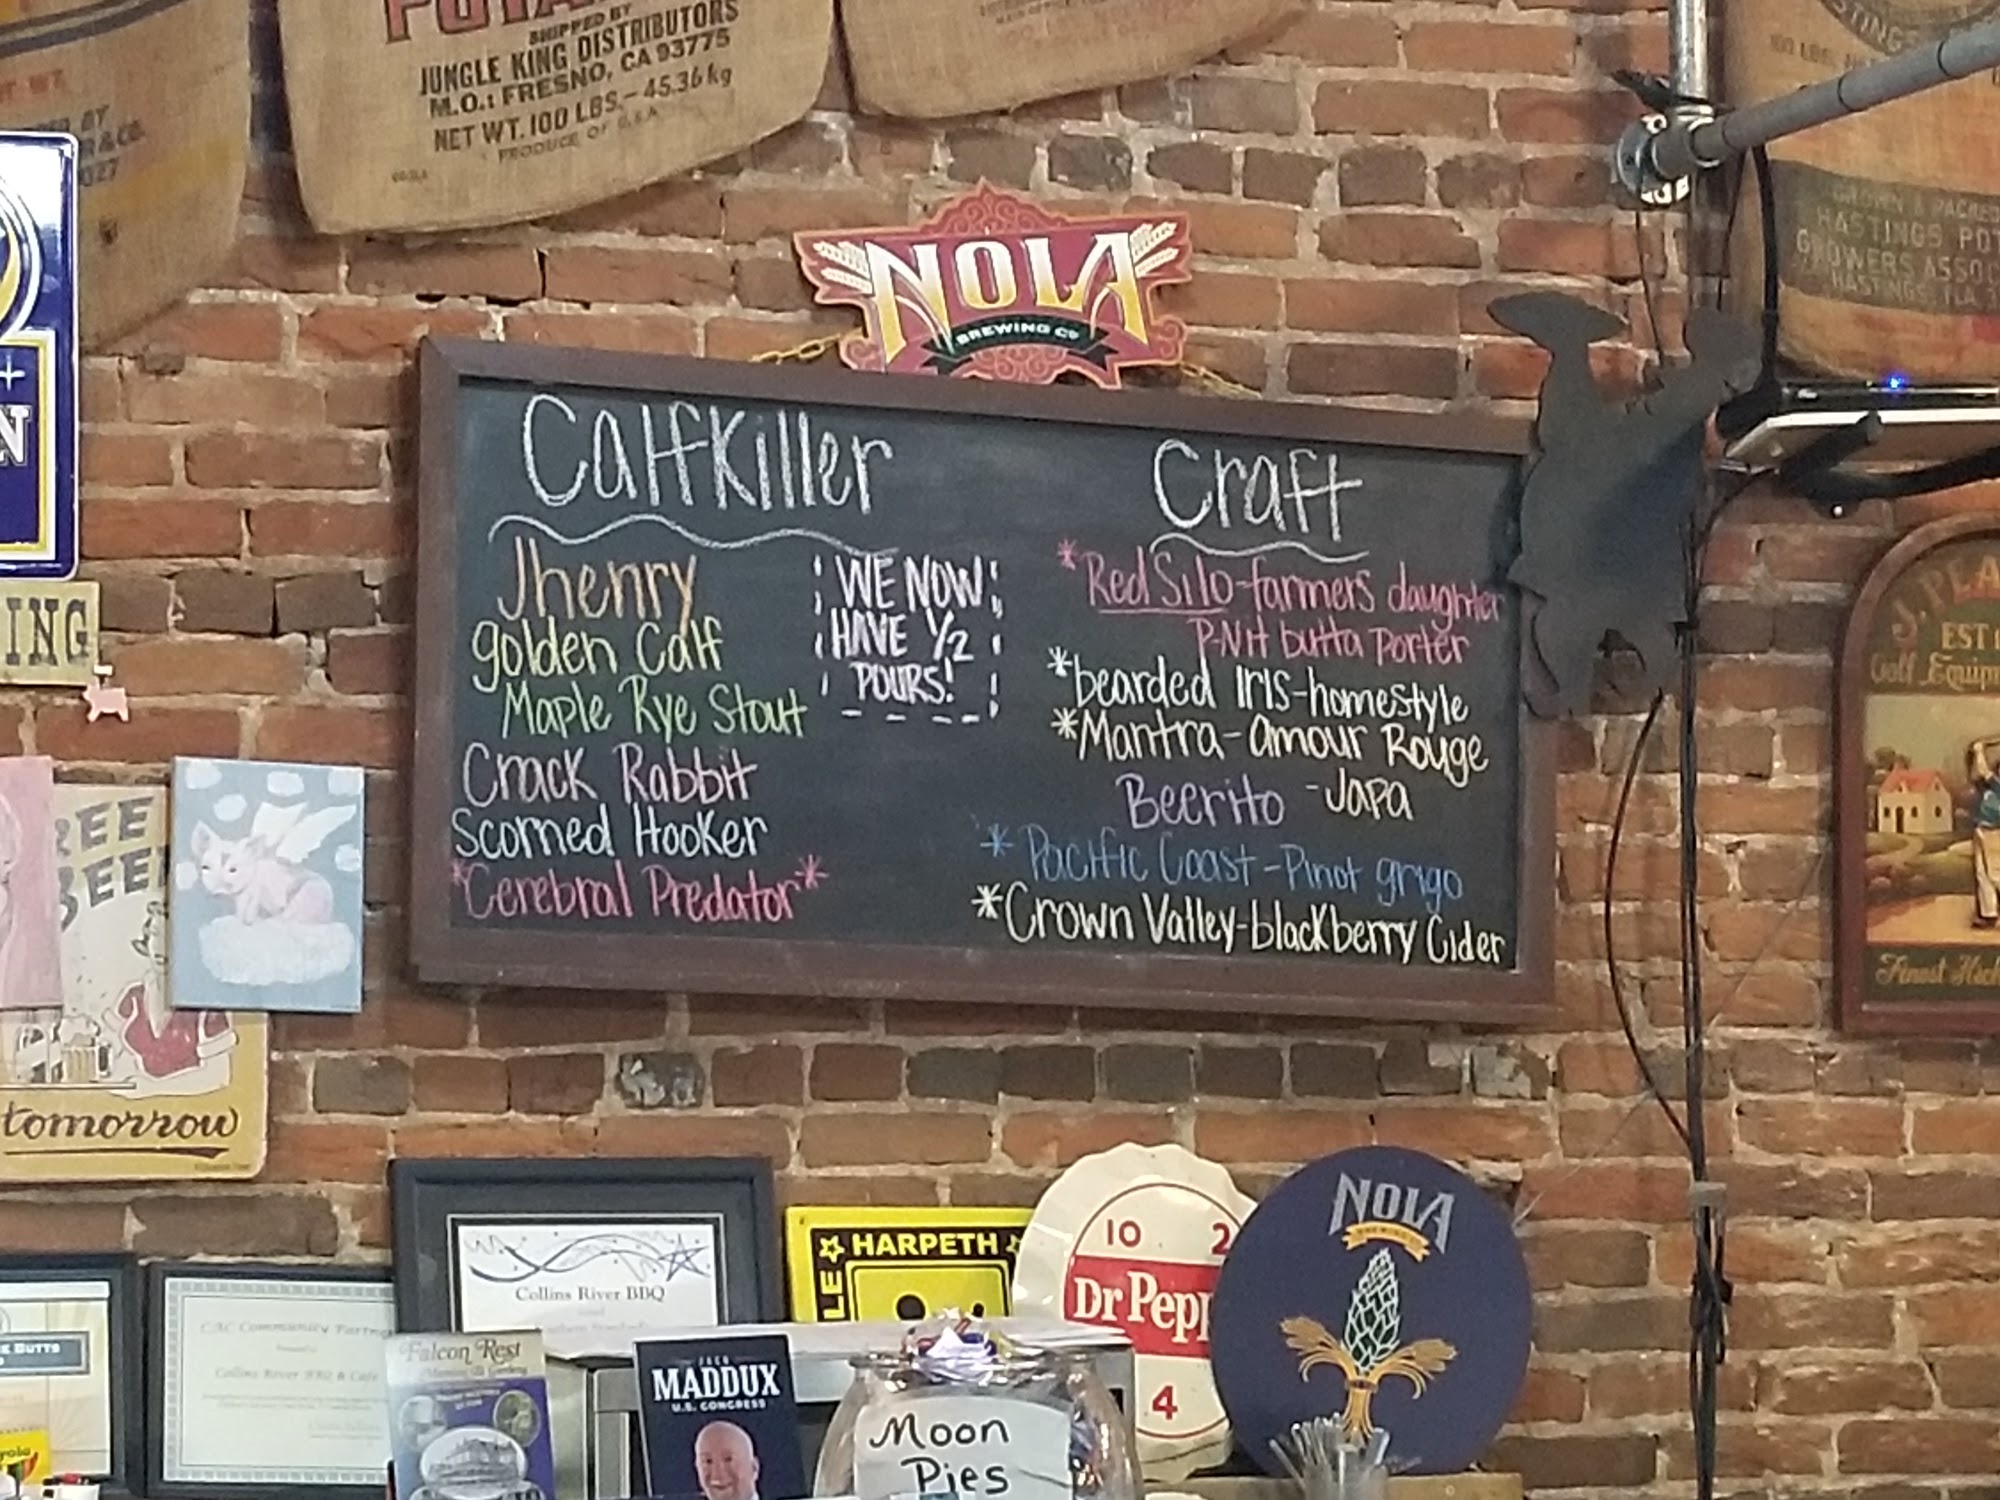 SHIPPED BY
JUNGLE KING DISTRIBUTORS
M.O.: FRESNO, CA 93775
NET WT. 100 LBS.-45.36 kg
PRODUCE OF U.S.A.
NOLA
BREWING CO
HASTINGS
GROWERS
HASTINGS,
CalfKiller
Jhenry
golden Calf
Maple Rye Stout
Crack Rabbit
Scorned Hooker
*Cerebral Predator*
WE NOW
HAVE 1/2
POURS!
Craft
*Red Silo-farmers daughter
P-Nit butta porter
*bearded Iris-homestyle
*Mantra-Amour Rouge
Beerito -Japa
*Pacific Coast-Pinot grigo
*Crown Valley-blackberry Cider
ING
REE
BEE
tomorrow
EST
Golf
Finest
Collins River BBQ
CAC Community
Collins River BBQ & Cafe
BUTTS
HARPETH
10 2
Dr Pepp
4
NOLA
Falcon Rest
MADDUX
U.S. CONGRESS
Moon
Pies